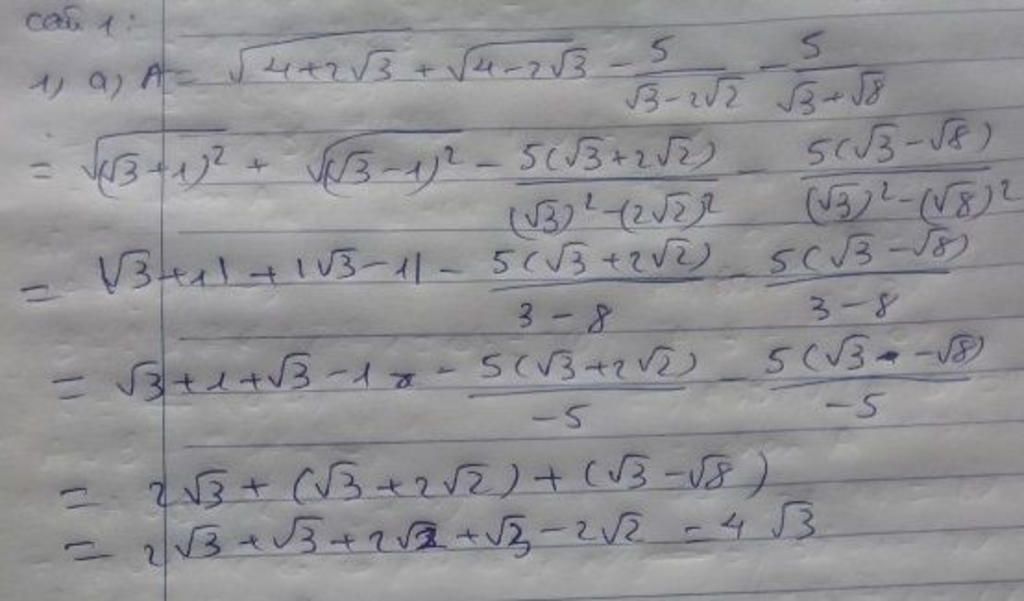 Câu 1:
1, a, A = √(4+2√3) + √(4-2√3) - 5/(√3-2√2) - 5/(√3+√8)
= √((√3+1)²) + √((√3-1)²) - 5(√3+2√2)/((√3)²-(2√2)²) - 5(√3-√8)/((√3)²-(√8)²)
= |√3+1| + |√3-1| - 5(√3+2√2)/(3-8) - 5(√3-√8)/(3-8)
= √3+1+√3-1 - 5(√3+2√2)/(-5) - 5(√3-√8)/(-5)
= 2√3 + (√3+2√2) + (√3-√8)
= 2√3+√3+2√2+√3-2√2 = 4√3